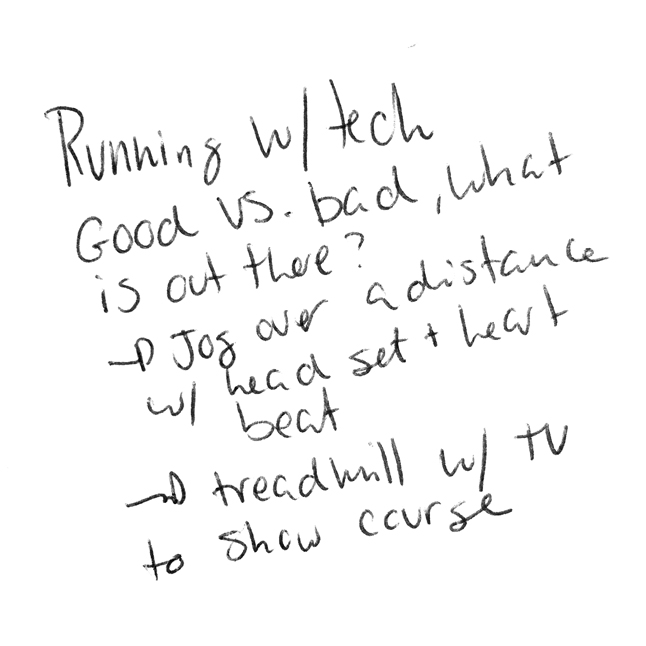 Running w/ tech
Good vs. bad, what
is out there?
→ Jog over a distance
w/ head set + heart
beat
→ treadmill w/ TV
to show course